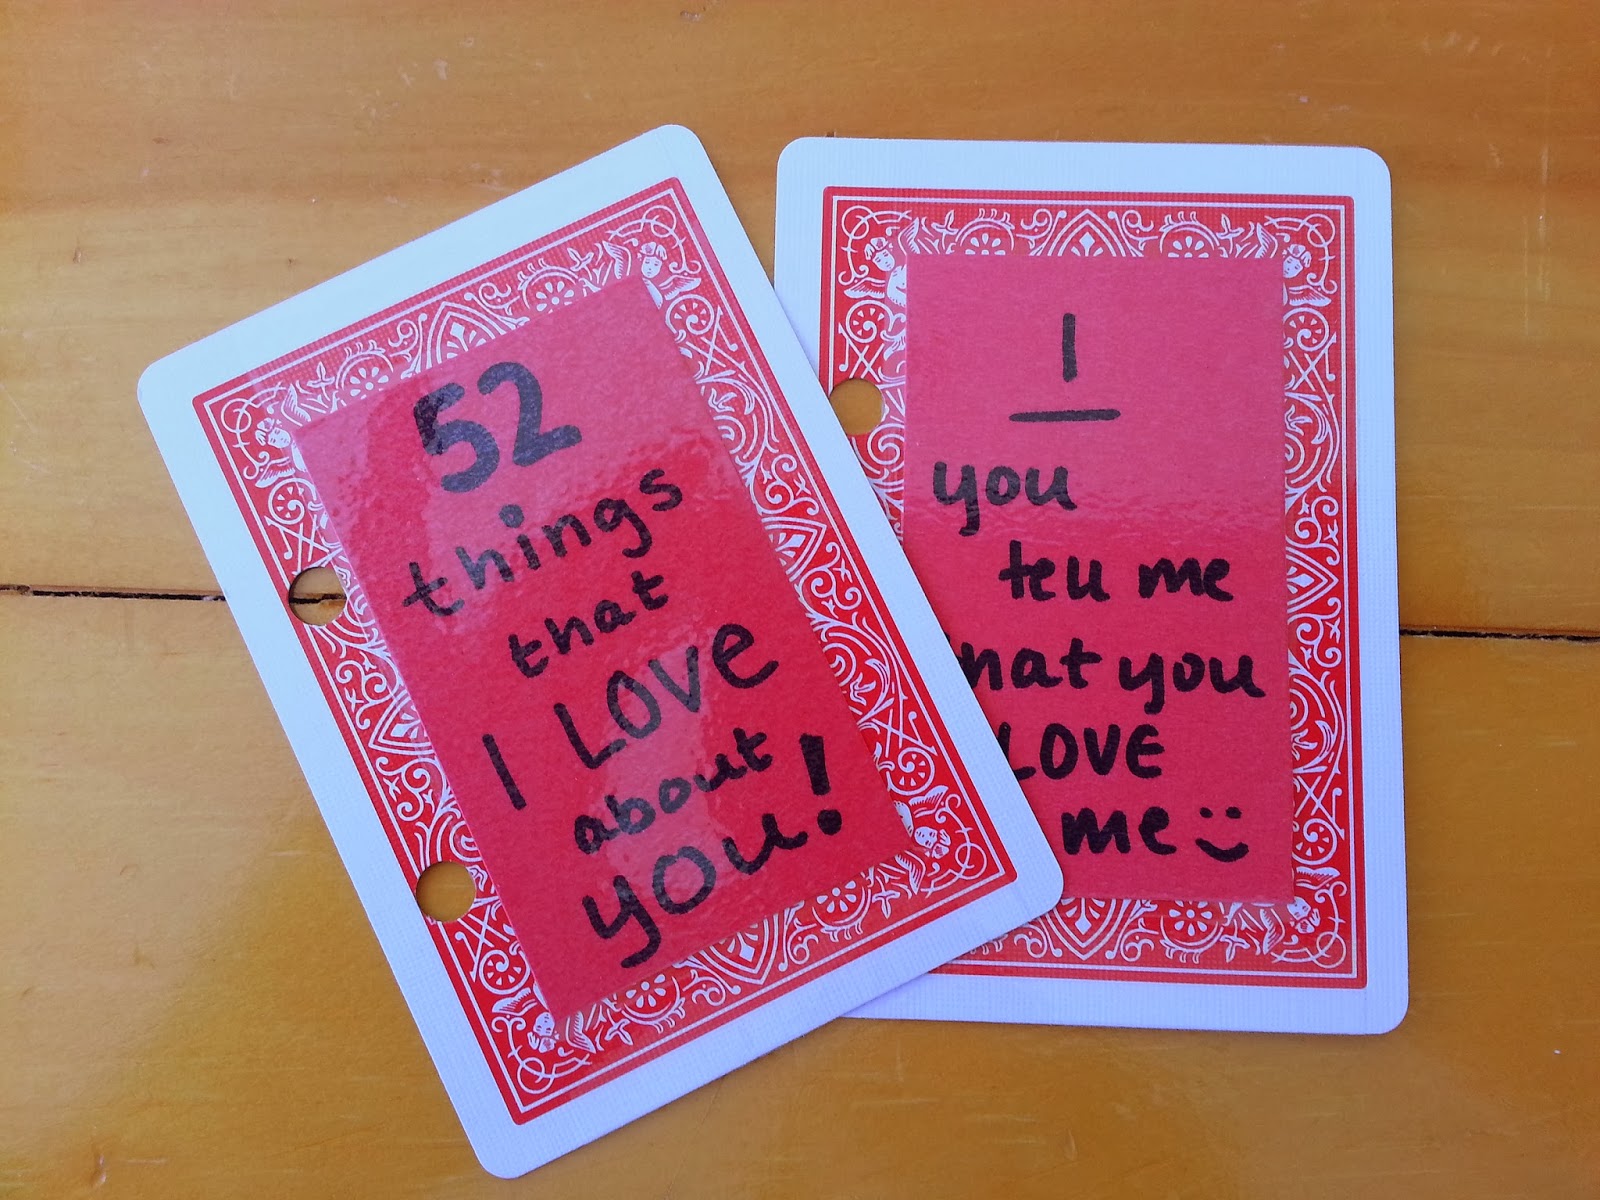 52
things
that
I LOVE
about
you!
1
you
tell me
that you
LOVE
me :)